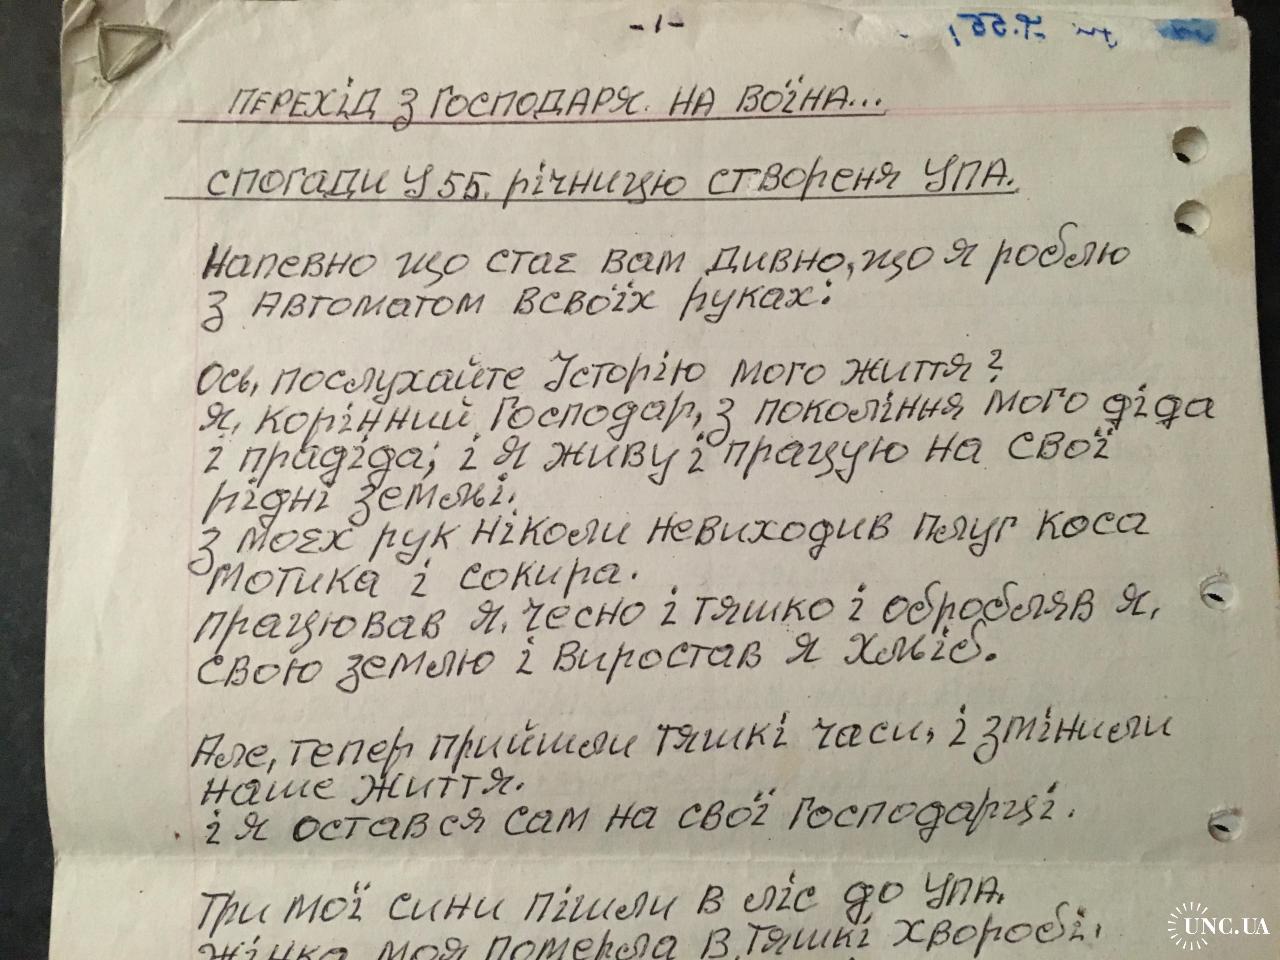 -1-
ПЕРЕХІД З ГОСПОДАРЯ НА ВОЇНА...
СПОГАДИ У 55. РІЧНИЦЮ СТВОРЕНЯ УПА.
Напевно що стає вам дивно, що я роблю
з автоматом всвоїх руках:
Ось, послухайте Історію мого життя?
я, корінний Господар, з покоління мого діда
і прадіда; і я живу і працую на свої
рідні землі.
з моєх рук ніколи невиходив плуг коса
мотика і сокира.
працював я, чесно і тяшко і обробляв я,
свою землю і виростав я хліб.
Але, тепер прийшли тяшкі часи, і змінили
наше життя.
і я остався сам на свої Господарці.
Три мої сини пішли в ліс до УПА.
жінка моя померла в тяшкі хворобі.
UNC.UA